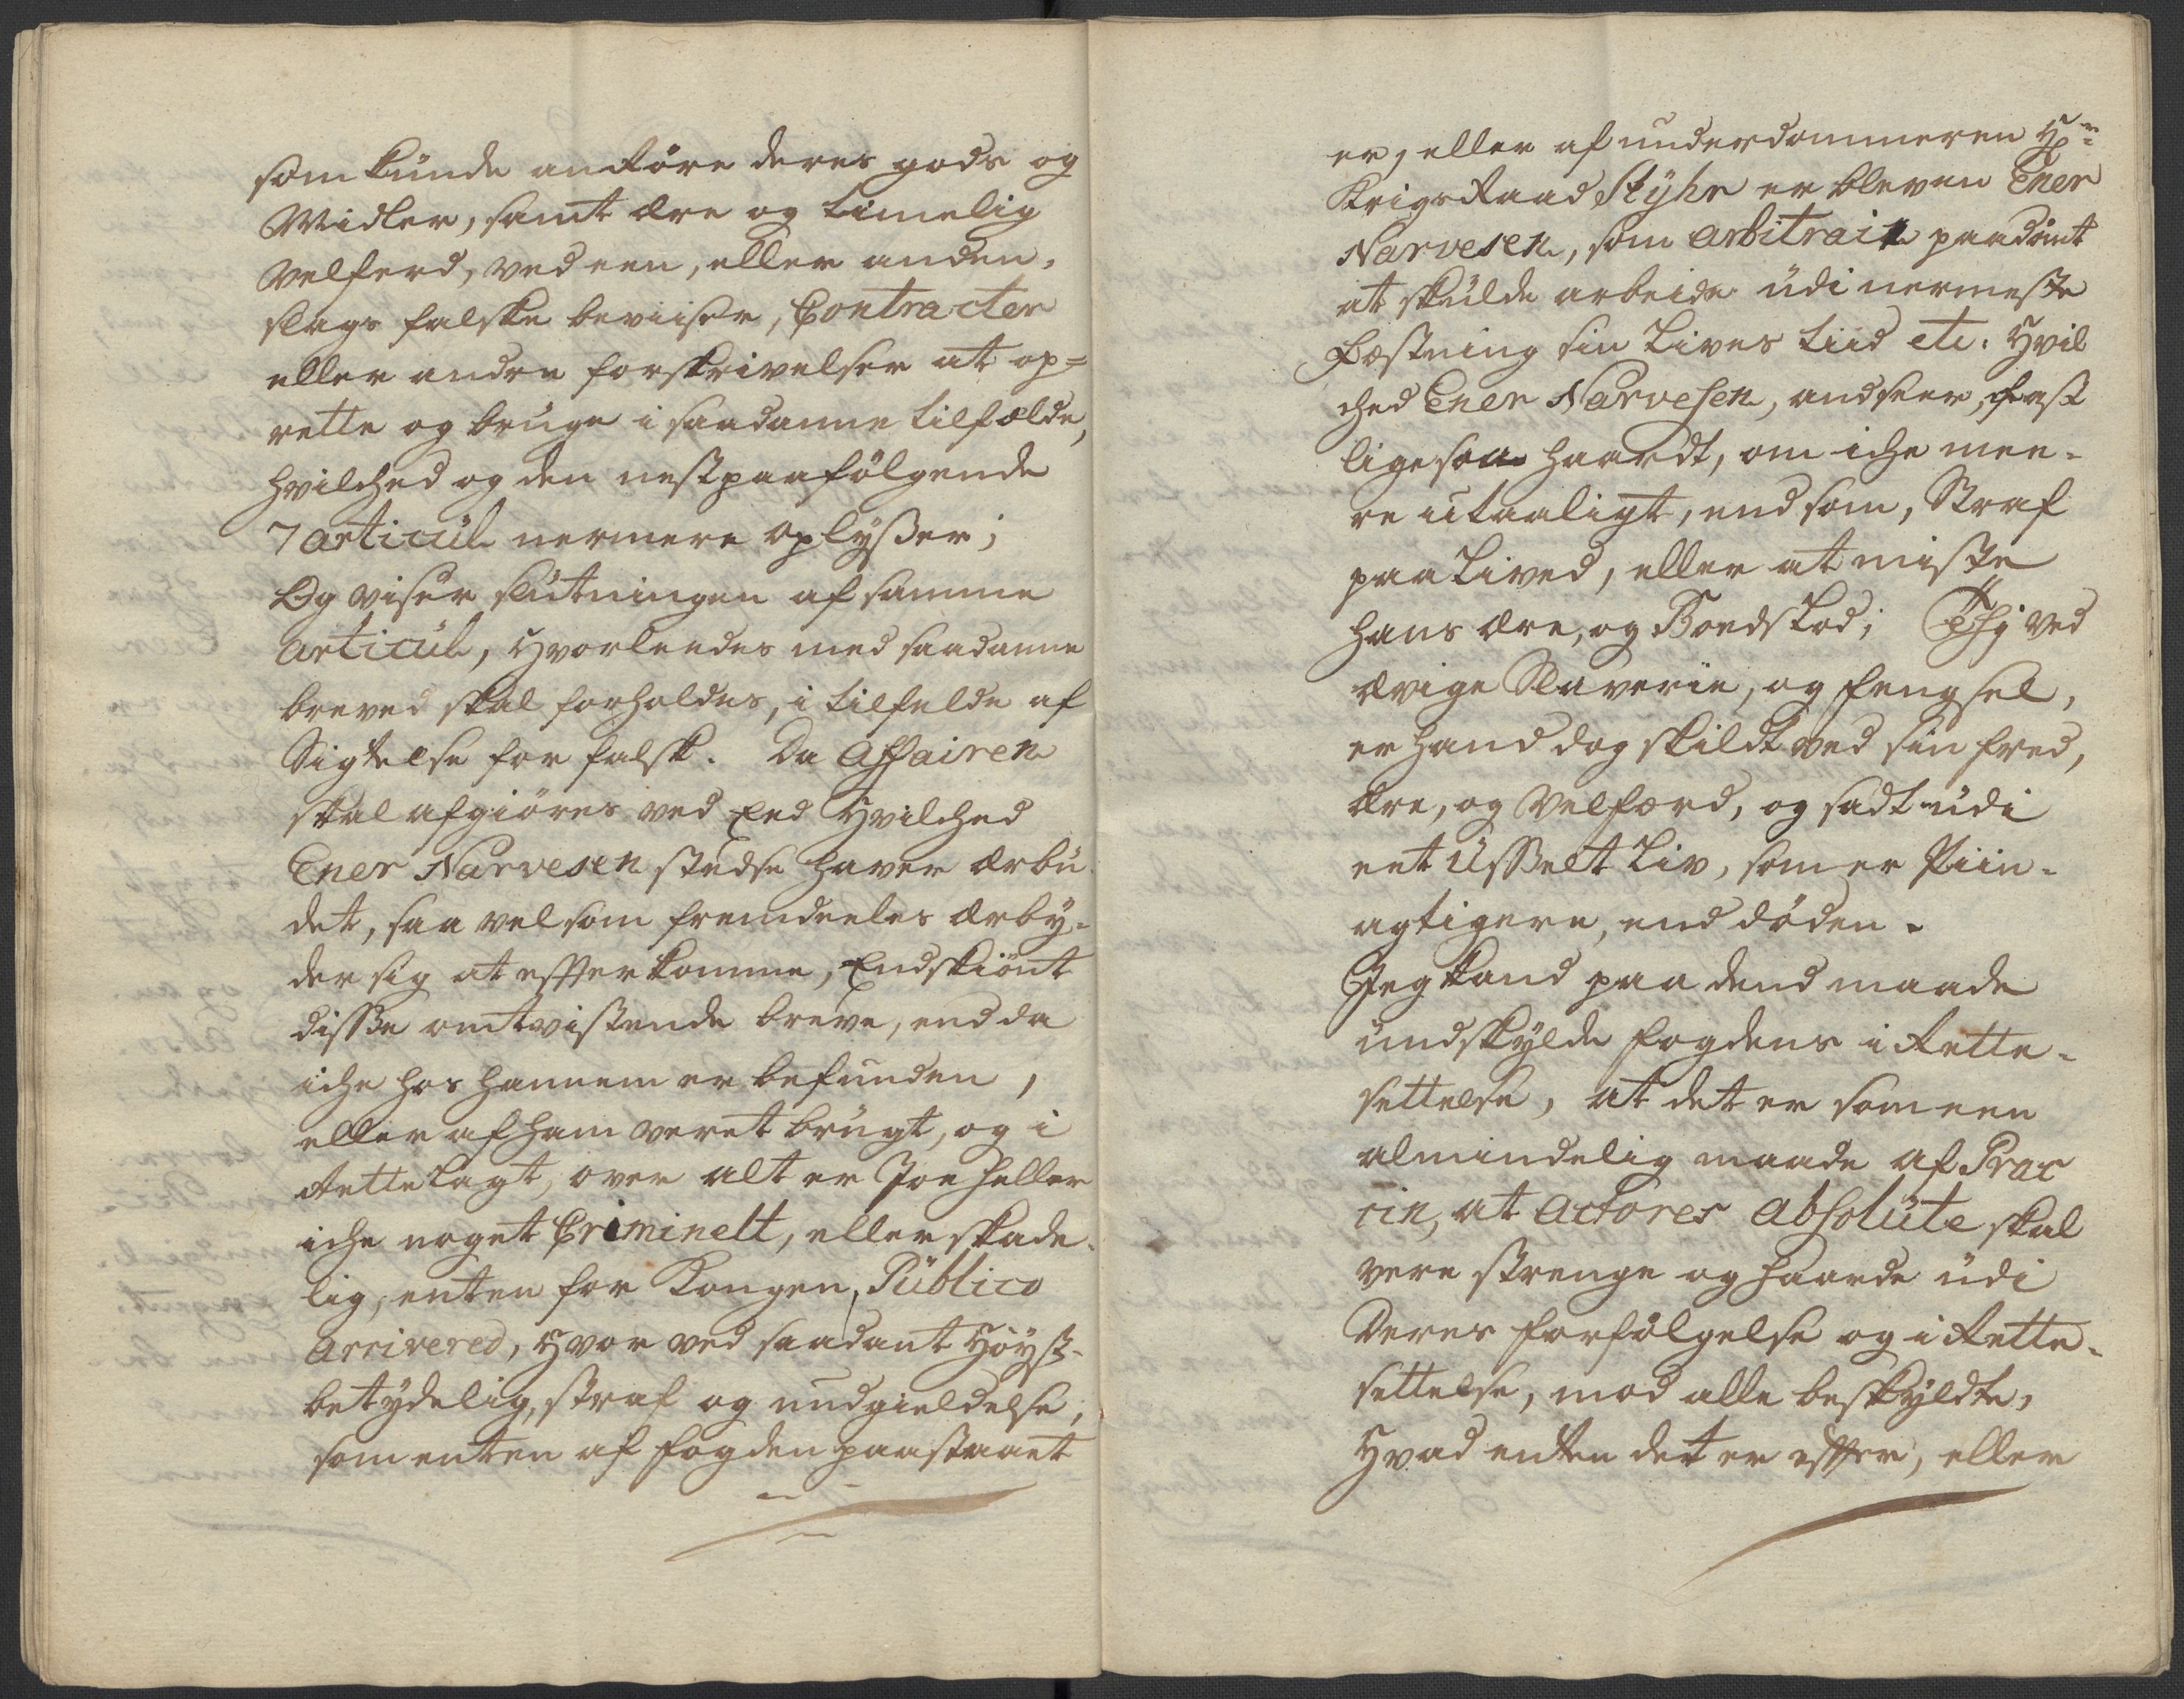 som kunde anröre deres gods og
Midler, samt ære og timelig
velferd, ved een, eller anden,
slags falske beviiser, Contracter
eller andre forskrivelser at op=
rette og bruge i saadanne tilfælde,
hvilched og den nestpaafölgende
7 Articul nermere oplyßer;
Og viser slutningen af samme
Articul, hvorleedes med saadanne
breved skal forholdes, i tilfelde af
Sigtelse for falsk. Da Affairen
skal afgiöres ved Eed hvilched
Ener Narvesen stedse haver ærbu
det, saa vel som fremdeeles ærby-
der sig at efterkomme, Endskiönt
disße omtvistende breve, endda
iche hos hannem er befunden,
eller af ham veret brugt, og i
Rette lagt, over alt er Joe heller
iche noget Criminelt, eller skade-
lig, enten for Kongen, Publico
arrivered, hvor ved saadant höyst-
betydelig, straf og undgieldelse,
som enten af fogden paastaaet
er, eller af underdommeren Hr:
Krigsraad Styhr er bleven Ener
Narvesen, som arbitrair paadömt
at skulde arbeide udi nermeste
Fæstning sin Lives tiid etc. Hvil
ched Ener Narvesen, andseer, fast
ligesaa haardt, om iche mee-
re utaaligt, end som, Straf
paa Lived, eller at miste
hans ære, og Boeds Lod; Thj ved
ævige Slaverie, og fengsel,
er hand dog skildt ved sin fred,
ære, og velfærd, og sadt udi
eet Usselt Liv, som er Piin-
agtigere, end döden.
Jeg kand paa dend maade
undskylde fogdens i Rette-
settelse, at det er som een
almindelig maade af Prac
cin, at Actores Absolute skal
vere strenge og haarde udi
Deres forfölgelse og i Rette-
settelse, mod alle beskyldte,
Hvad enten det er efter, eller